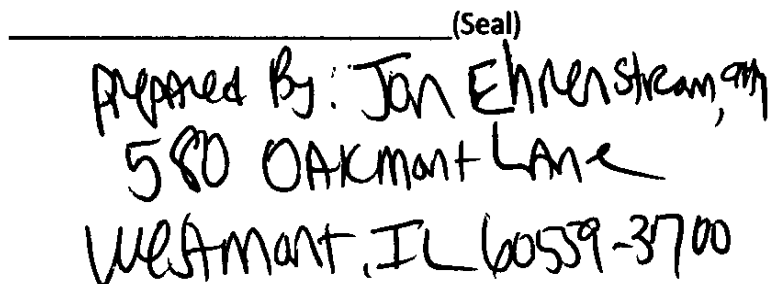 (Seal)
Prepared By: Jon Ehrenstream, atty
580 Oakmont Lane
Westmont, IL 60559-3700